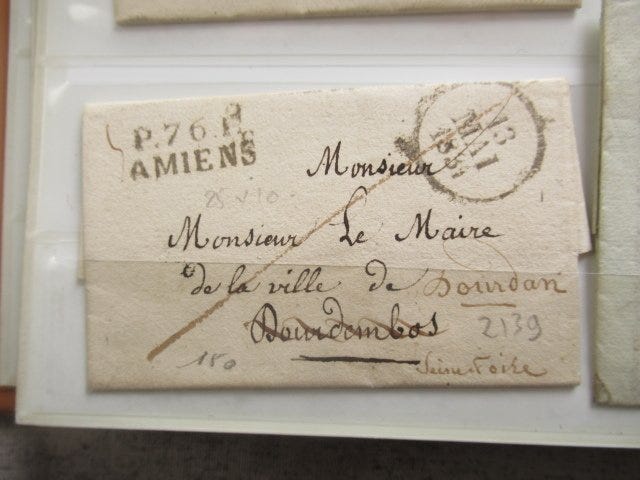 P.76.P.
AMIENS
13
MAI
25 v 10
Monsieur
Monsieur Le Maire
de la ville de Dourdan
Dourdembos
2139
150
Seine et oise